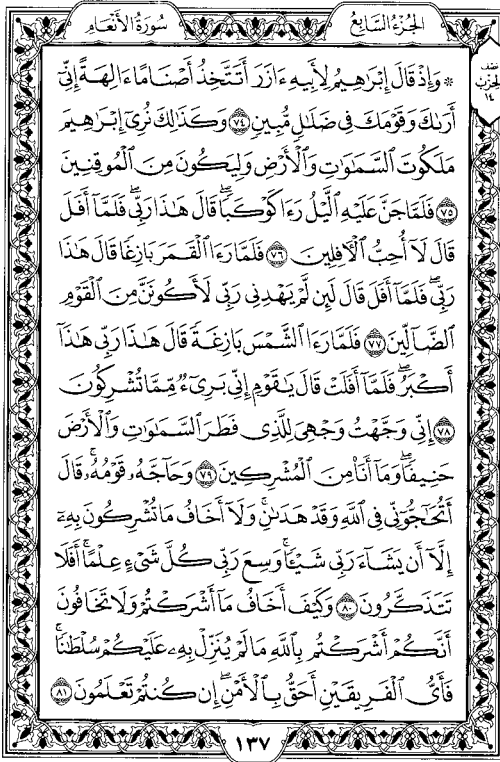 الجزء السابع
سورة الأنعام
نصف
الحزب
١٤
* وَإِذْ قَالَ إِبْرَٰهِيمُ لِأَبِيهِ ءَازَرَ أَتَتَّخِذُ أَصْنَامًا ءَالِهَةً إِنِّيٓ
أَرَىٰكَ وَقَوْمَكَ فِي ضَلَٰلٍ مُّبِينٍ ٧٤ وَكَذَٰلِكَ نُرِيٓ إِبْرَٰهِيمَ
مَلَكُوتَ ٱلسَّمَٰوَٰتِ وَٱلْأَرْضِ وَلِيَكُونَ مِنَ ٱلْمُوقِنِينَ
٧٥ فَلَمَّا جَنَّ عَلَيْهِ ٱلَّيْلُ رَءَا كَوْكَبًاۖ قَالَ هَٰذَا رَبِّيۖ فَلَمَّآ أَفَلَ
قَالَ لَآ أُحِبُّ ٱلْءَافِلِينَ ٧٦ فَلَمَّا رَءَا ٱلْقَمَرَ بَازِغًا قَالَ هَٰذَا
رَبِّيۖ فَلَمَّآ أَفَلَ قَالَ لَئِن لَّمْ يَهْدِنِي رَبِّي لَأَكُونَنَّ مِنَ ٱلْقَوْمِ
ٱلضَّآلِّينَ ٧٧ فَلَمَّا رَءَا ٱلشَّمْسَ بَازِغَةً قَالَ هَٰذَا رَبِّي هَٰذَآ
أَكْبَرُۖ فَلَمَّآ أَفَلَتْ قَالَ يَٰقَوْمِ إِنِّي بَرِيٓءٌ مِّمَّا تُشْرِكُونَ
٧٨ إِنِّي وَجَّهْتُ وَجْهِيَ لِلَّذِي فَطَرَ ٱلسَّمَٰوَٰتِ وَٱلْأَرْضَ
حَنِيفًاۖ وَمَآ أَنَا۠ مِنَ ٱلْمُشْرِكِينَ ٧٩ وَحَآجَّهُۥ قَوْمُهُۥۚ قَالَ
أَتُحَٰٓجُّوٓنِّي فِي ٱللَّهِ وَقَدْ هَدَىٰنِۚ وَلَآ أَخَافُ مَا تُشْرِكُونَ بِهِۦٓ
إِلَّآ أَن يَشَآءَ رَبِّي شَيْـًٔاۗ وَسِعَ رَبِّي كُلَّ شَيْءٍ عِلْمًاۗ أَفَلَا
تَتَذَكَّرُونَ ٨٠ وَكَيْفَ أَخَافُ مَآ أَشْرَكْتُمْ وَلَا تَخَافُونَ
أَنَّكُمْ أَشْرَكْتُم بِٱللَّهِ مَا لَمْ يُنَزِّلْ بِهِۦ عَلَيْكُمْ سُلْطَٰنًاۚ
فَأَيُّ ٱلْفَرِيقَيْنِ أَحَقُّ بِٱلْأَمْنِۖ إِن كُنتُمْ تَعْلَمُونَ ٨١
١٣٧